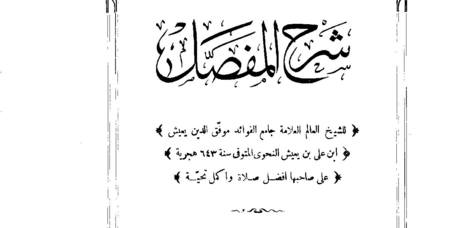 شرح المفصل
﴿ للشيخ العالم العلامة جامع الفوائد موفق الدين يعيش ﴾
﴿ ابن على بن يعيش النحوى المتوفى سنة ٦٤٣ هجرية ﴾
﴿ على صاحبها افضل صلاة واكمل تحيّة ﴾